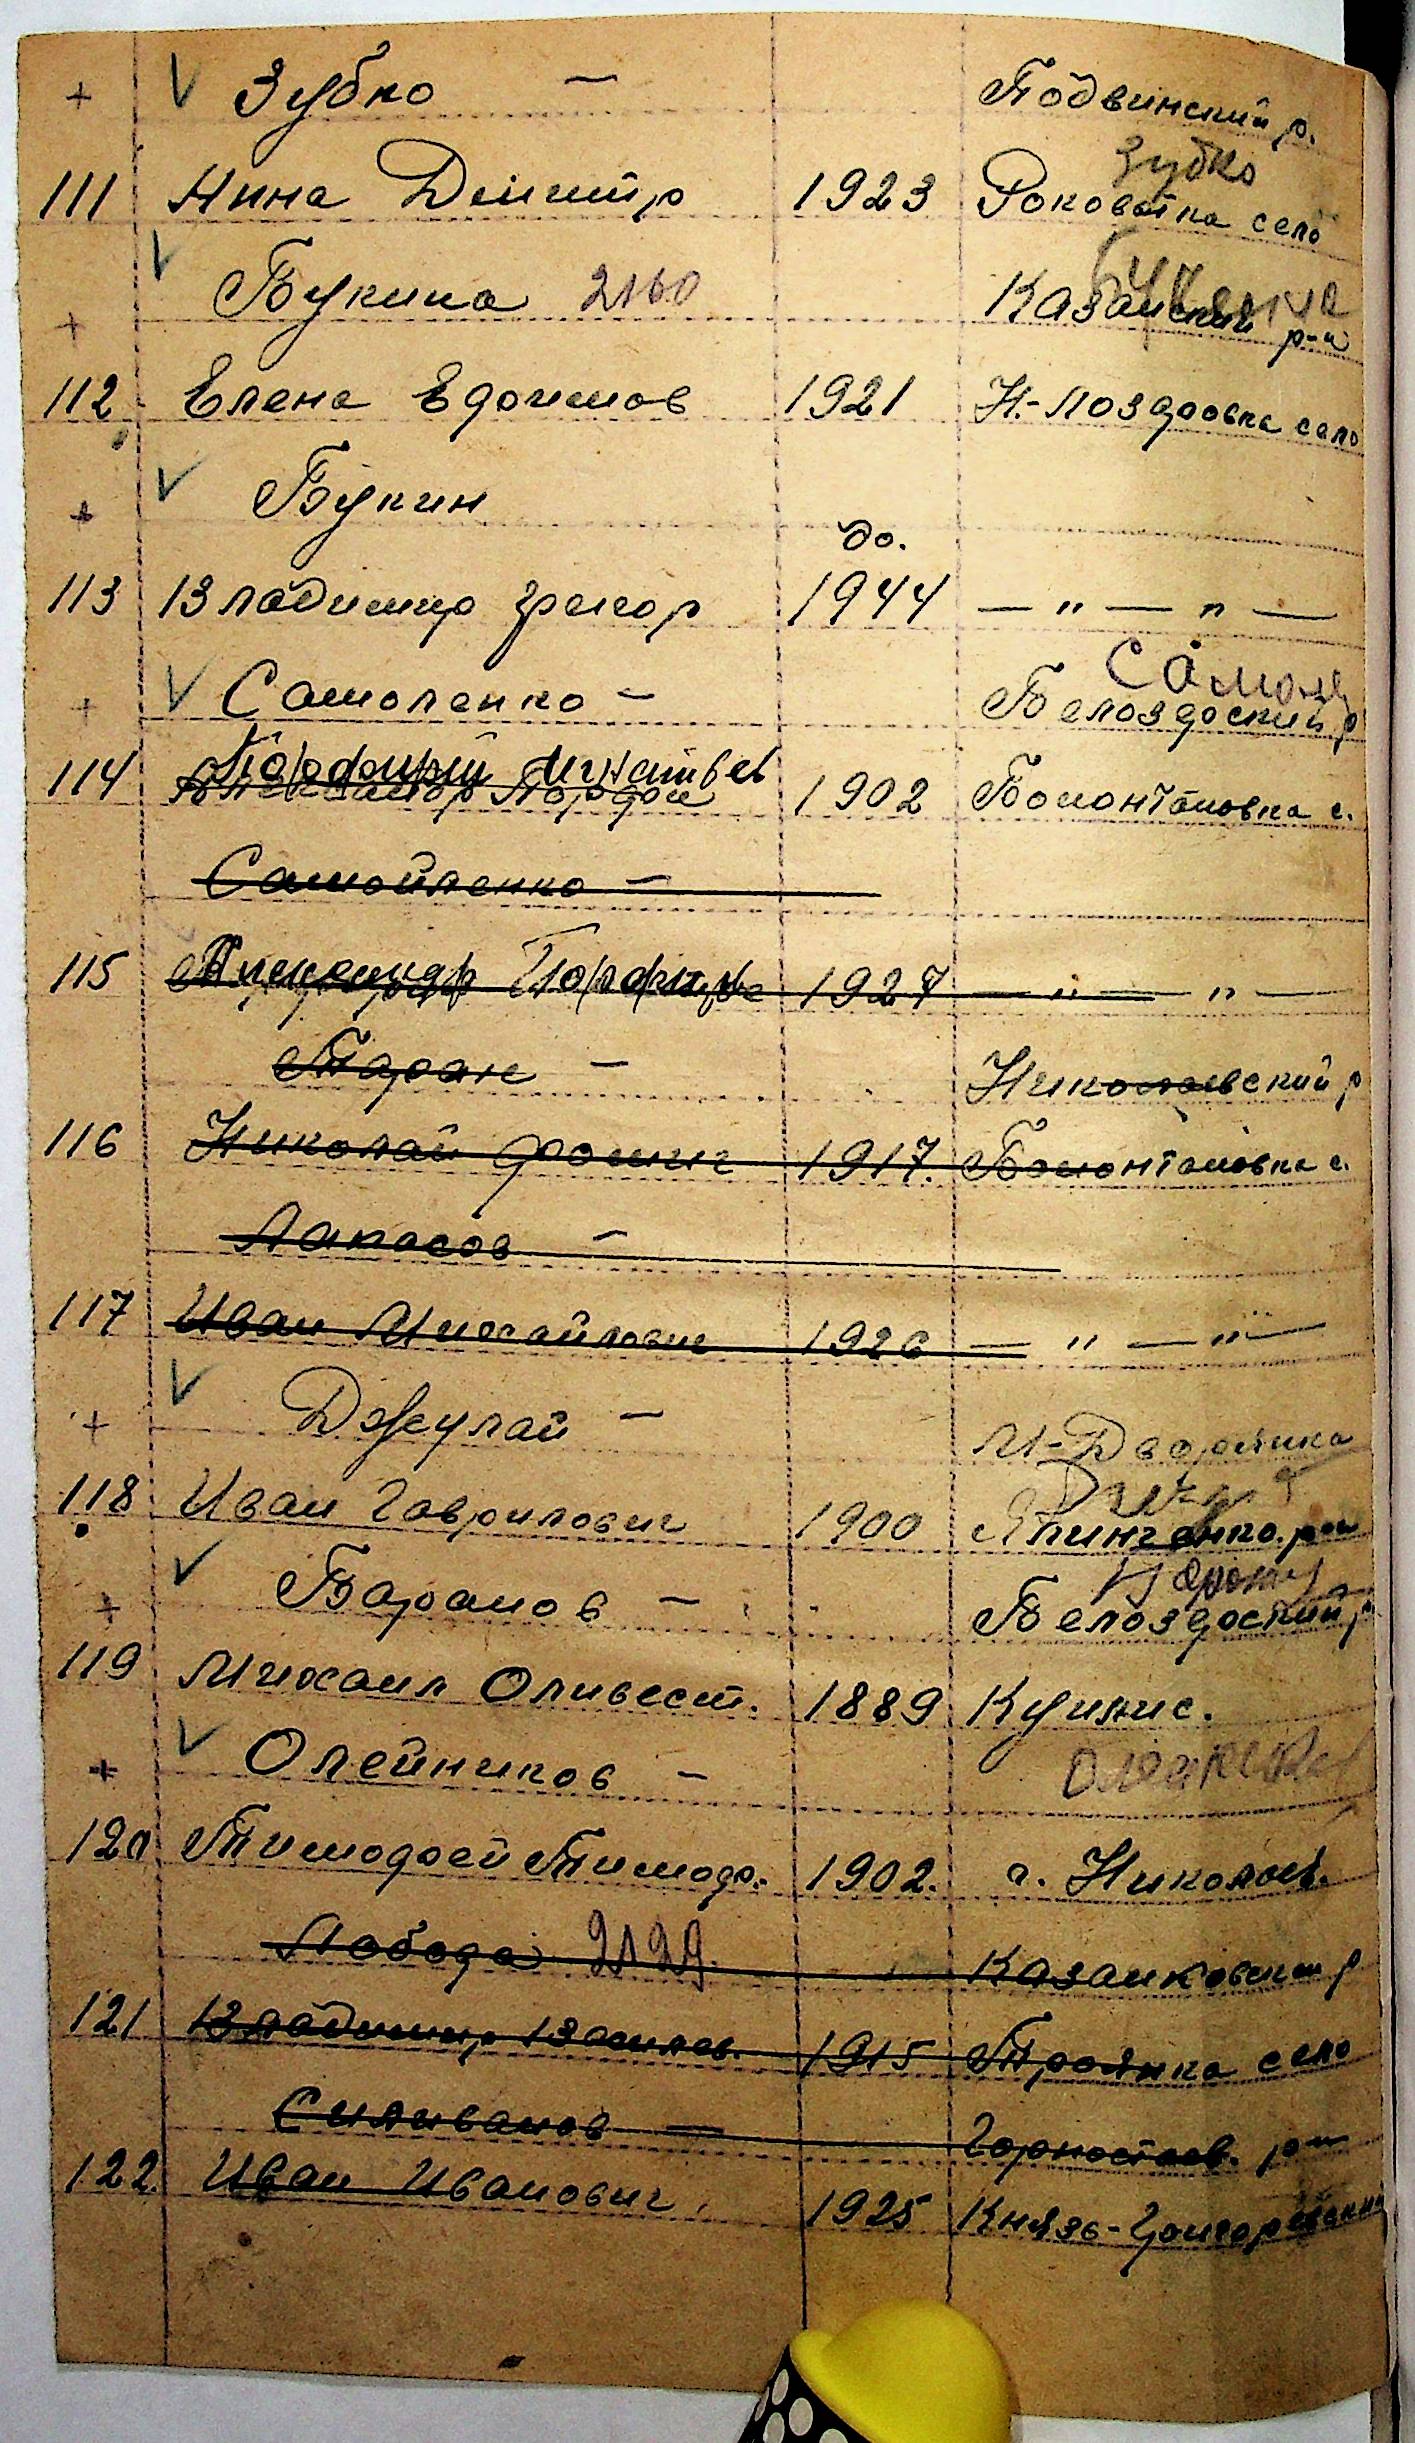 + V Зубко — Подвинский р.
Зубко
111 Нина Димитр 1923 Роковатка село
V Букина 2160
+ Казанский р-н
112 Елена Едокимов 1921 Н.-Лоздровка село
+ V Букин
до.
113 Владимир Григор 1944 — " — " —
Самойл
+ V Самоленко — Белоздоский р
Порфирий Матвеев
114 1902 Бомонтановка с.
Самойленко —
115 Александр Порфирье 1927 — " — " —
Таран — Николаевский р
116 Николай Фомич 1917. Бомонтановка с.
Лапасов —
117 Иван Михайлович 1926 — " — " —
+ V Джулай — М-Дворянка
118 Иван Гаврилович 1900
+ V Баранов — Белоздоский р
119 Михаил Оливест. 1889 Куцыис.
+ V Олейников — Олейников
120 Тимофей Тимоф. 1902. г. Николаев.
Лобода 2129 Казанковский р
121 Владимир Васильев. 1915 Троянка село
Силиванов — Горностаев. р-н
122. Иван Иванович. 1925 Князь-Григоревка